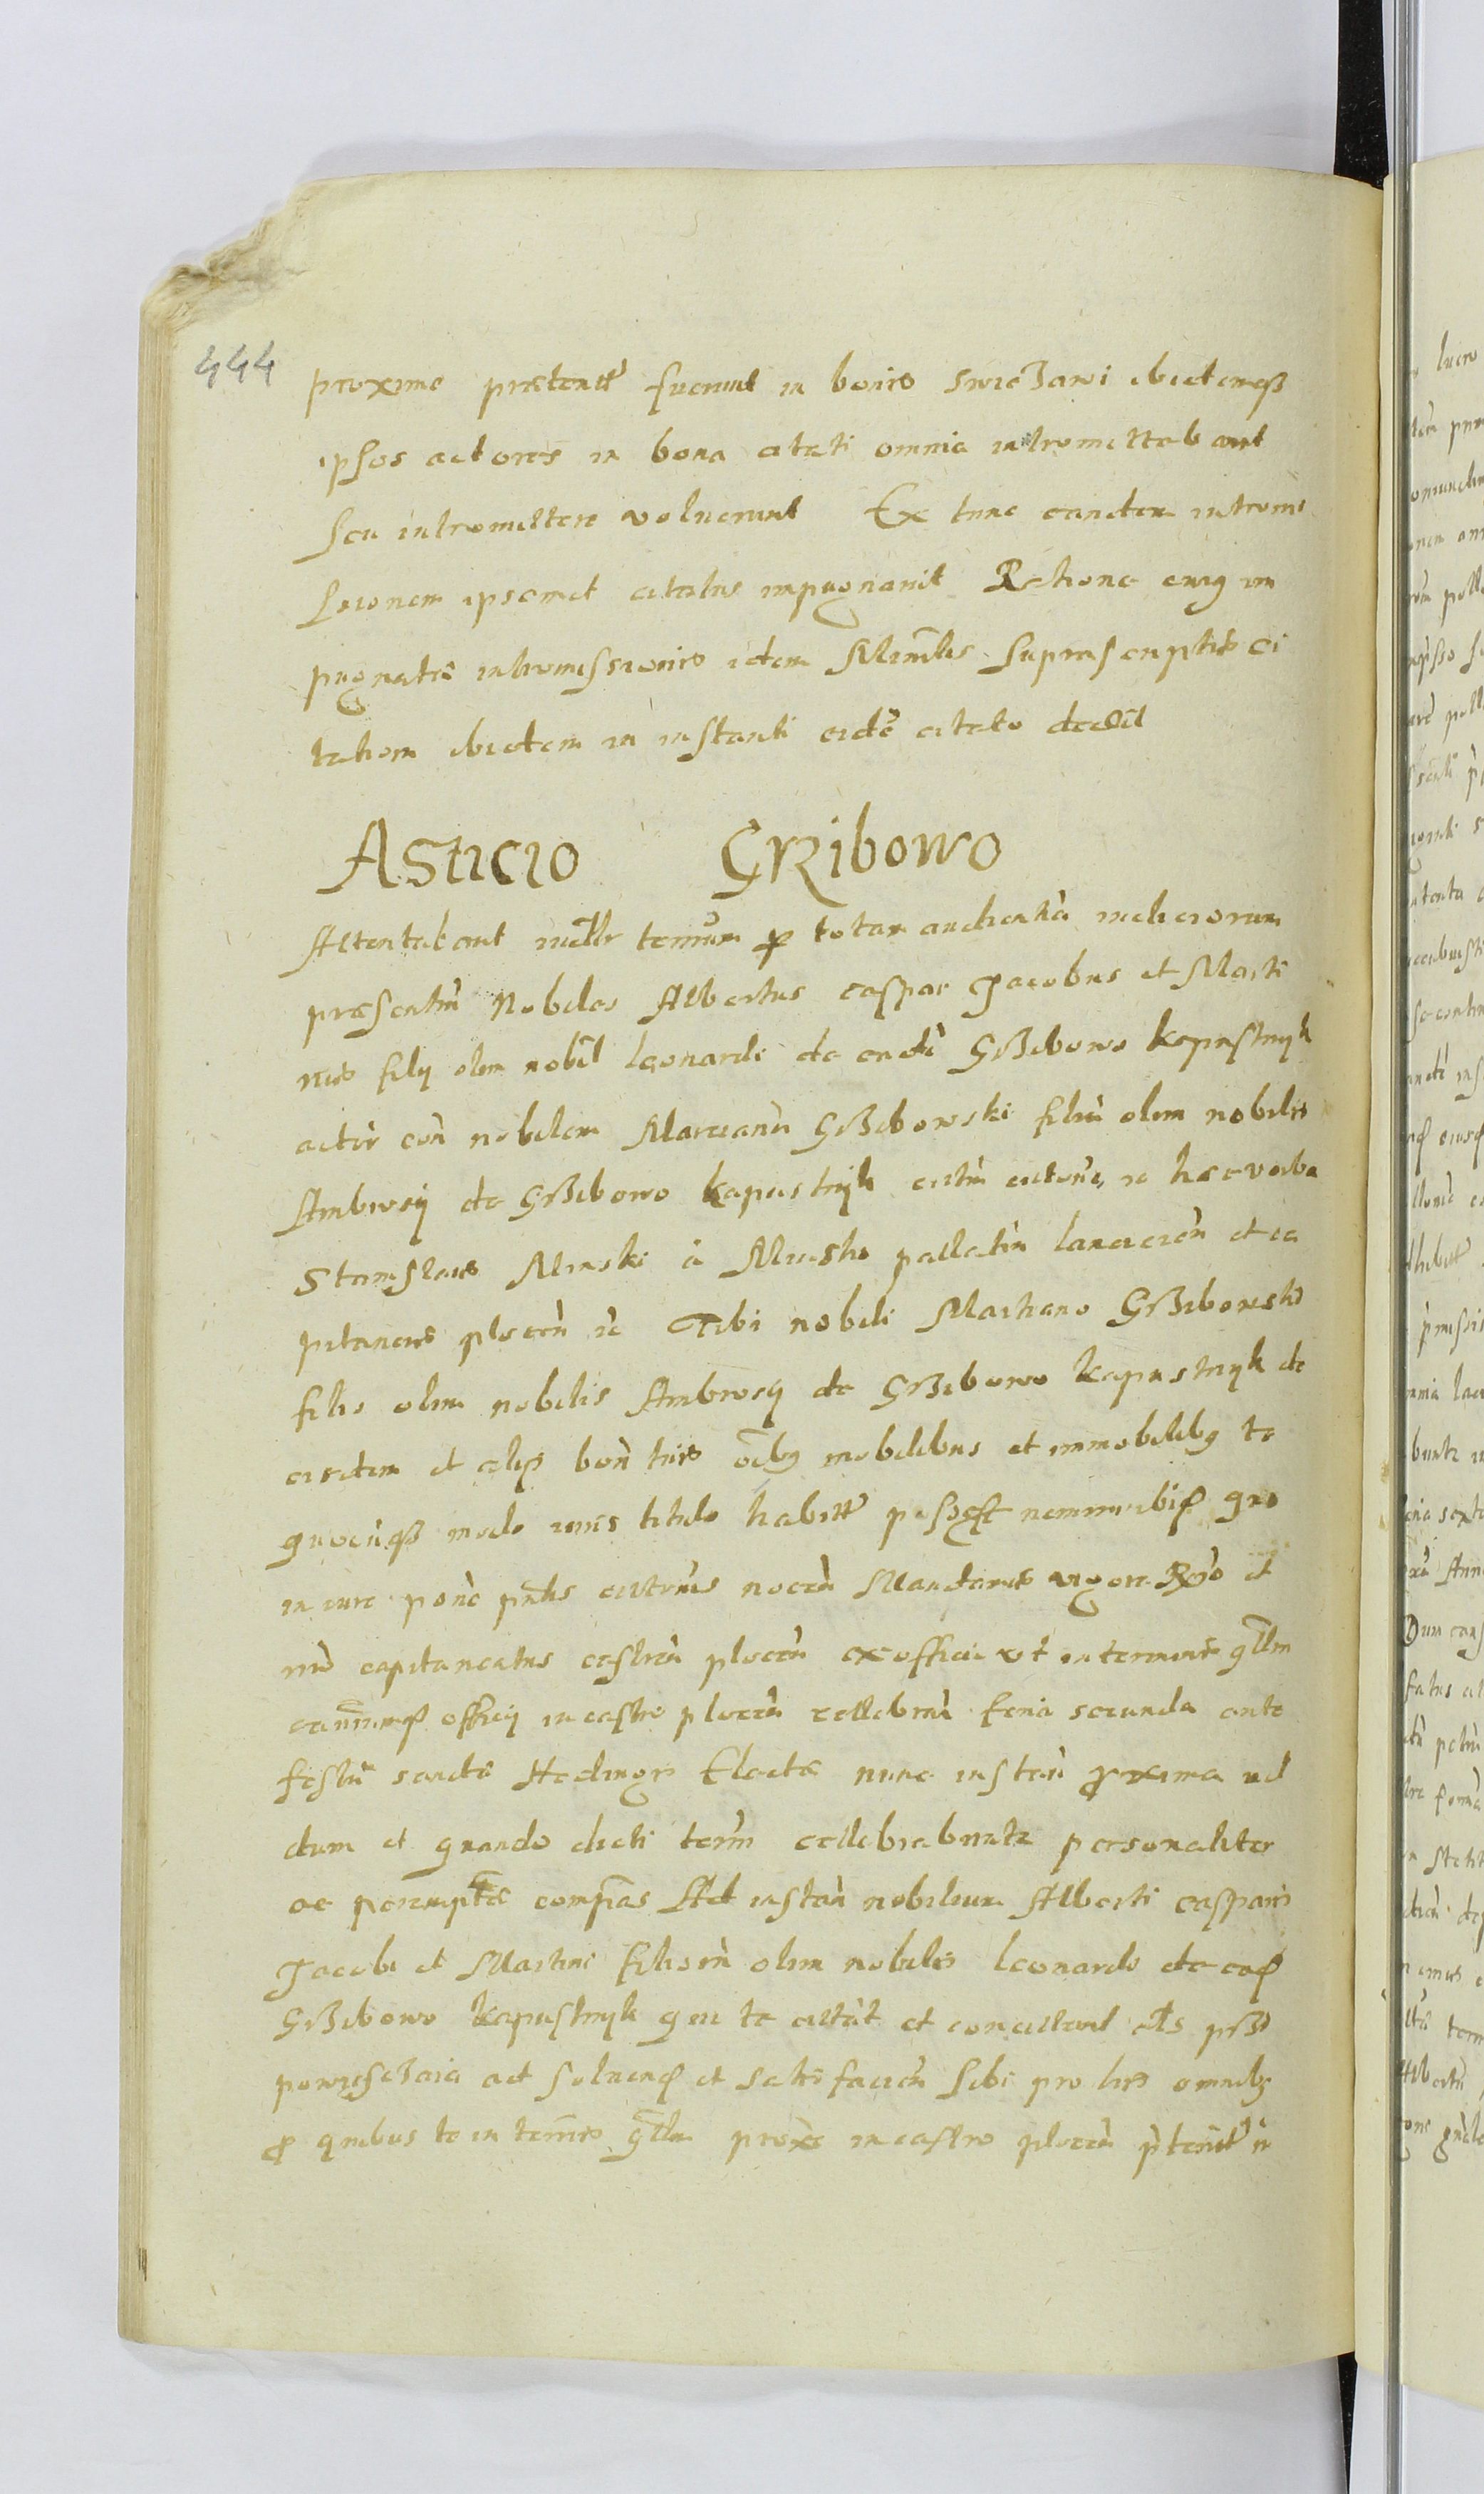 444
proxime praeteritꝰ fuerunt in bonis swieżawi ibidemqꝫ
ipsos actores in bona citati omnia intromittebant
seu intromittere voluerunt Ex tunc eandem intromis
sionem ipsemet citatus impugnavit Ratione cuiꝰ im
pugnatę intromissionis idem Minrlis suprascriptus ci
tationem ibidem in instanti eidē citato dedit
Asticio Grzibowo
Attentabant iudlr termnum ꝑ totam audientiā iudiciorum
praesentiū Nobiles Albertus caspar Jacobus et Marti
nus filij olim nobil leonardi de eadē Grzibowo kapustnyk
actōr con nobilem Marcianū Grzibowski filiū olim nobilis
Ambrosij de Grzibowo kapustnyk citū citatione, in haec verba
Stanislaus Minski à Minsko pallatin lancicien et ca
pitaneus plocen etc Tibi nobili Martiano Grzibowski
filio olim nobilis Ambrosij de Grzibowo kapustnyk de
eisdem et alijs bon tuis oibꝰ mobilibus et immobilibꝰ te
quocūqꝫ modo iuris titulo habitꝰ possess nominibusq quo
in iure pone pntis citatnis nocen Mandamus vigore Regio et
nrō capitaneatus castren plocen ex officii vt in terminis gnlm
eandemq officij in castro plocen cellebran feria secunda ante
festū sanctę Hedwigis Electę nunc instan proxima vel
dum et quando dicti term cellebrabuntr personaliter
ac peremptę compeas Ad instan nobilium Alberti casparis
Jacobi et Martini filiorū olim nobilis leonardi de eaq
Grzibowo kapustnyk qui te citāt et concitant als przi
powiesczaia ad solvenq et satisfacien sibi pro his omnibꝫ
ꝓ quibus te in termis gnlm proxe in castro plocen pteritꝰ in